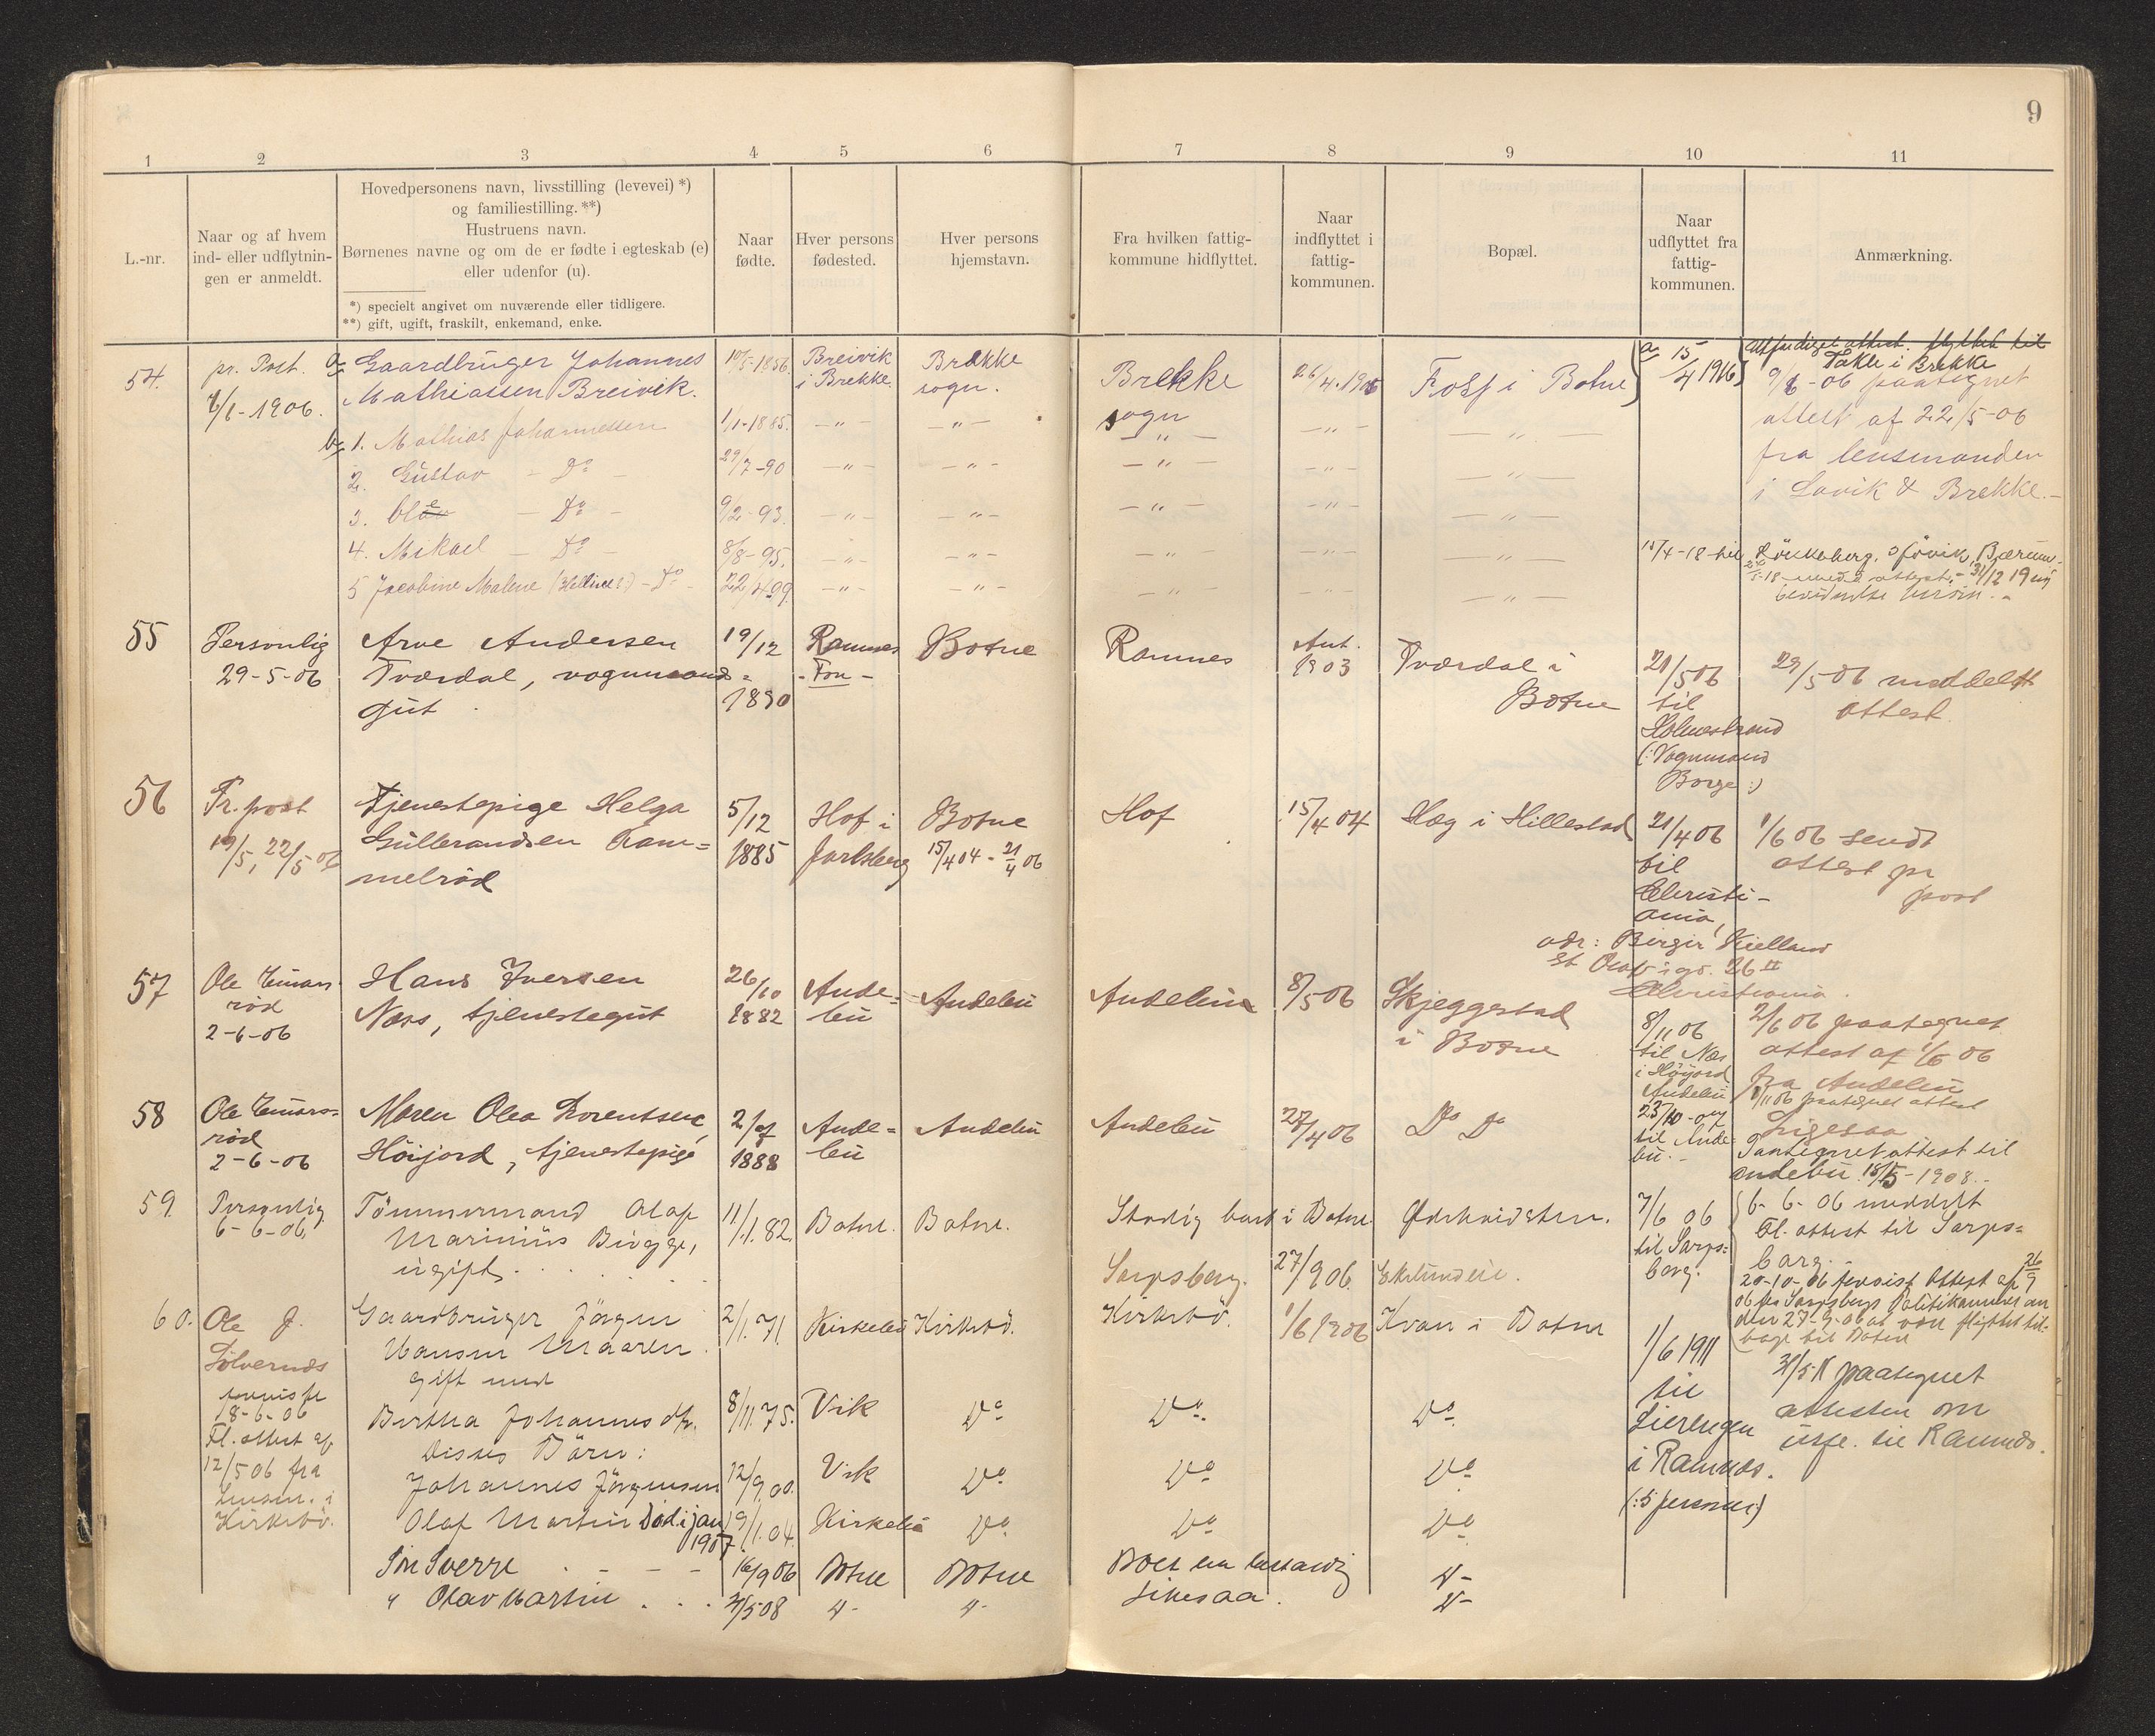 9
1 2 3 4 5 6 7 8 9 10 11
L.-nr.
Naar og af hvem
ind- eller udflytnin-
gen er anmeldt.
Hovedpersonens navn, livsstilling (levevei) *)
og familiestilling. **)
Hustruens navn.
Børnenes navne og om de er fødte i egteskab (e)
eller udenfor (u).
*) specielt angivet om nuværende eller tidligere.
**) gift, ugift, fraskilt, enkemand, enke.
Naar
fødte.
Hver persons
fødested.
Hver persons
hjemstavn.
Fra hvilken fattig-
kommune hidflyttet.
Naar
indflyttet i
fattig-
kommunen.
Bopæl.
Naar
udflyttet fra
fattig-
kommunen.
Anmærkning.
54.
pr. Post.
-1906.
a, Gaardbruger Johannes
Mathiassen Breivik.
Breivik
i Brekke.
Brekke
sogn.
Brekke
sogn
Foss i Botne
a, 15/4 1916
Takle i Brekke
-06 paategnet
attest af 22/5-06
fra lensmanden
i Lavik & Brekke.-
b, 1. Mathias Johannessen
1/1-1885. -"- -"- -"- -"- -"-
2. Gustav - Do -
29/7-90 -"- -"- -"- -"- -"-
3. - Do -
9/2-93. -"- -"- -"- -"- -"-
4. Mikael - Do -
8/8-95. -"- -"- -"- -"- -"-
15/4-18 til
Bærum.
5 Jacobine Malene - Do -
22/4 99. -"- -"- -"- -"- -"-
31/12 19
55
Personlig
29-5-06
Arve Andersen
Tværdal, vognmands=
gut
19/12
1890
Ramnes
Botne
Ramnes
1903
Tværdal i
Botne
21/5 06
til
Holmestrand
(: Vognmand
Borge :)
29/5 06 meddelt
attest
56
Pr. post
19/5, 22/5 06
Tjenestepige Helga
Gulbrandsen Ram=
melrød
5/12
1885
Hof i
Jarlsberg
Botne
15/4 04 - 21/4 06
Hof
15/4 04
Hæg i Hillestad
21/4 06
til
Christi-
ania,
adr: Birger Kielland
St Olafs gd. 26 II
Christiania.
1/6 06 sendt
attest pr
post
57
Ole
rød
2-6-06
Hans Iversen
Næss, tjenestegut
26/10
1882
Ande=
bu
Andebu
Andebu
8/5 06
Skjeggestad
i Botne
8/11 06
til Næs
i Høijord
Andebu
2/6 06 paategnet
attest af 1/6 06
fra Andebu
8/11 06 paategnet attest
58
Ole
rød
2-6-06
Maren Olea Lorentsen
Höijord, tjenestepige
2/7
1888
Ande=
bu
Andebu
Andebu
/4 06
Do Do
23/10-07
til Ande=
bu.-
Ligesaa
Paategnet attest til
Andebu 15/5-1908.-
59.
Personlig
6-6-06.
Tömmermand Olaf
Marinius Bugge,
ugift
11/1.82.
Botne.
Botne.
Stadig boet i Botne.
7/6 06
til Sarps=
borg.
6-6-06 meddelt
Fl. attest til Sarps=
borg.-
Sarpsborg.
27/9 06.
20-10-06 forvist Attest af 26/9
06 fra Sarpsborgs Politikammer om
den 27-9-06 at være flyttet til-
bage til Botne
60.
Ole J.
Sølvernæs
forvis fl
18-6-06
Fl. attest af
12/5 06 fra
Lensm. i
Kirkebö.
Gaardbruger Jörgen
Hansen Maaren.
gift med
2/1.71.
Kirkebö
Kirkebö.
Kirkebö.
1/6 1906
Kvan i Botne
1/6 1911
til
Lierengen
i Ramnæs.
(:5 personer:)
31/5-11 paategnet
attesten om
utfl. til Ramnæs.
Bertha Johannesdtr.
8/11.75. Vik Do Do. Do.
Disses Börn:
Johannes Jörgensen
12/9.00. Vik Do Do Do
Olaf Martin Död i jan.
1907
9/1.04. Kirkebö Do. Do Do
Jon Sverre - - -
16/9 06 Botne Botne
Boet her bestandig
D-
" Olav Martin . . .
/5 08 D- D-
Likesaa.
D-